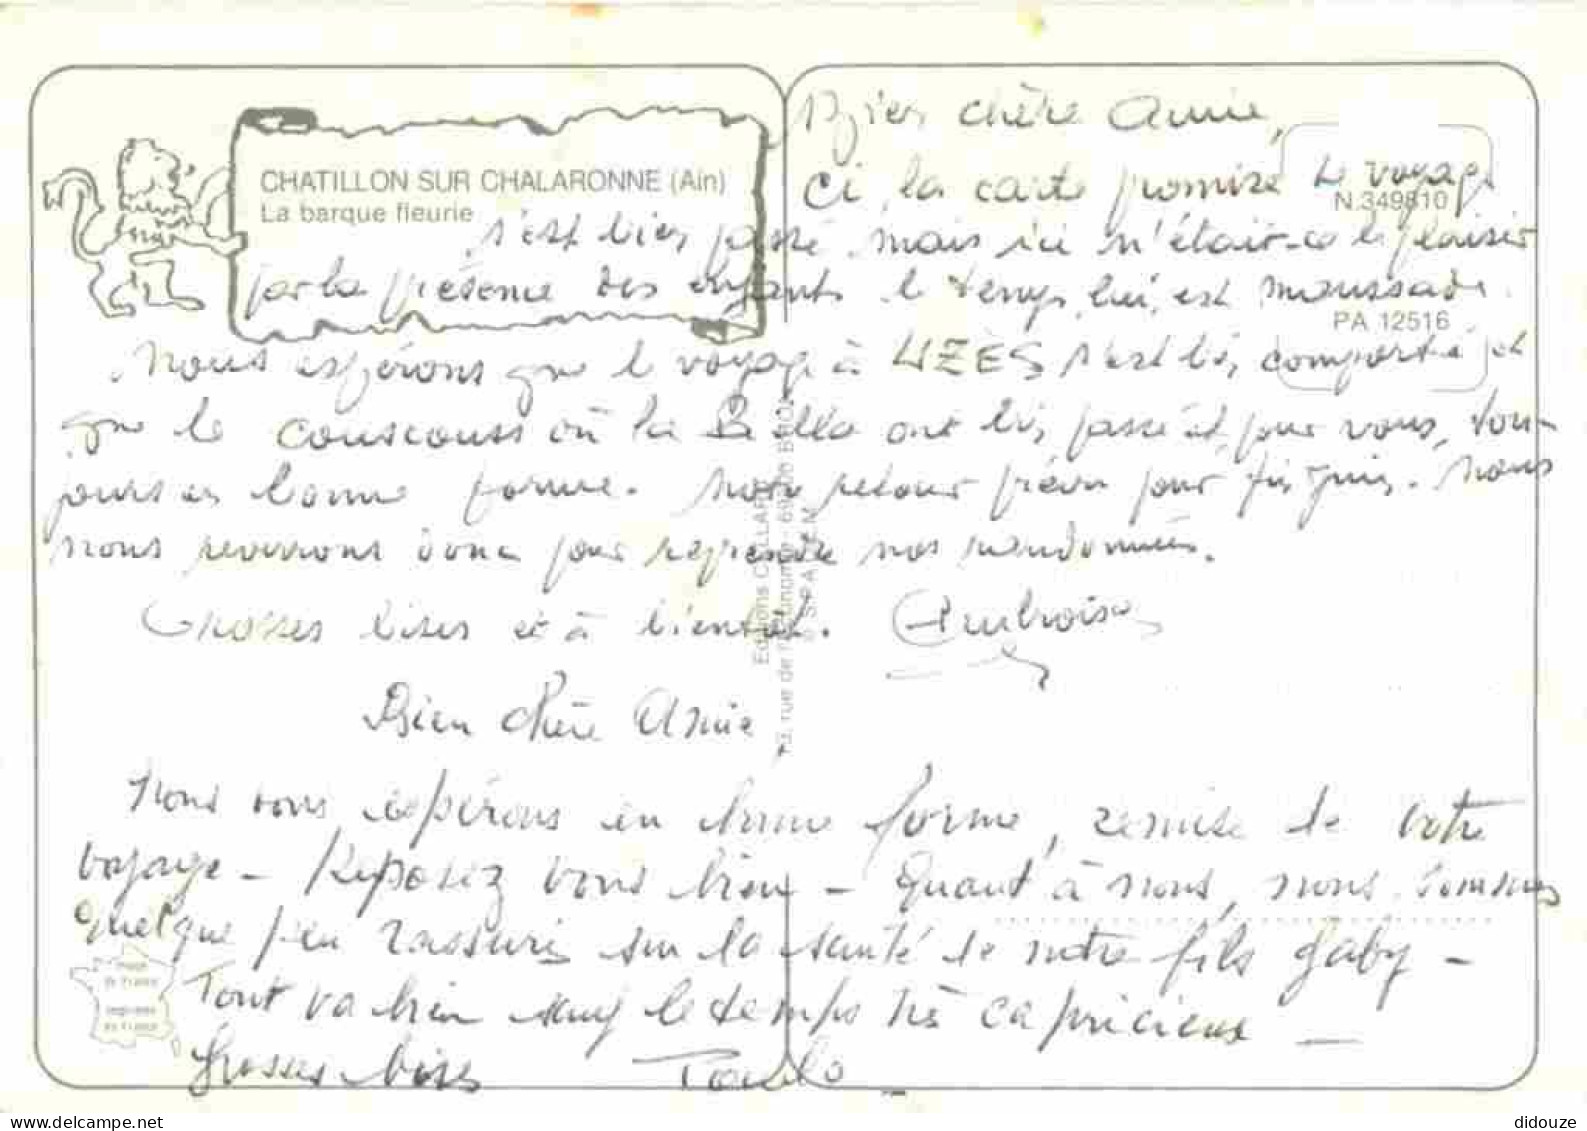 CHATILLON SUR CHALARONNE (Ain)
La barque fleurie
N.349810
PA 12516
Bien chère Annie,
ci la carte promise Le voyage
s'est bien passé mais ici n'était-ce le plaisir
par la présence des enfants le temps, lui, est maussade.
Nous espérons que le voyage à UZÈS s'est bien comporté et
que le couscous où la ont bien passé et, pour vous, tou-
jours en bonne forme. Notre retour prévu pour fin Juin. Nous
nous reverrons donc pour reprendre nos randonnées.
Grosses bises et à bientôt. Ambroise
Bien chère Annie
Nous vous espérons en bonne forme, remise de votre
voyage - Reposez vous bien - Quant à nous, nous sommes
quelque peu rassurés sur la santé de notre fils Gaby -
Tout va bien sauf le temps très capricieux -
Grosses bises Paulo
Editions CELLARD
rue de l'Economie
Image
de France
Imprimée
en France
didouze